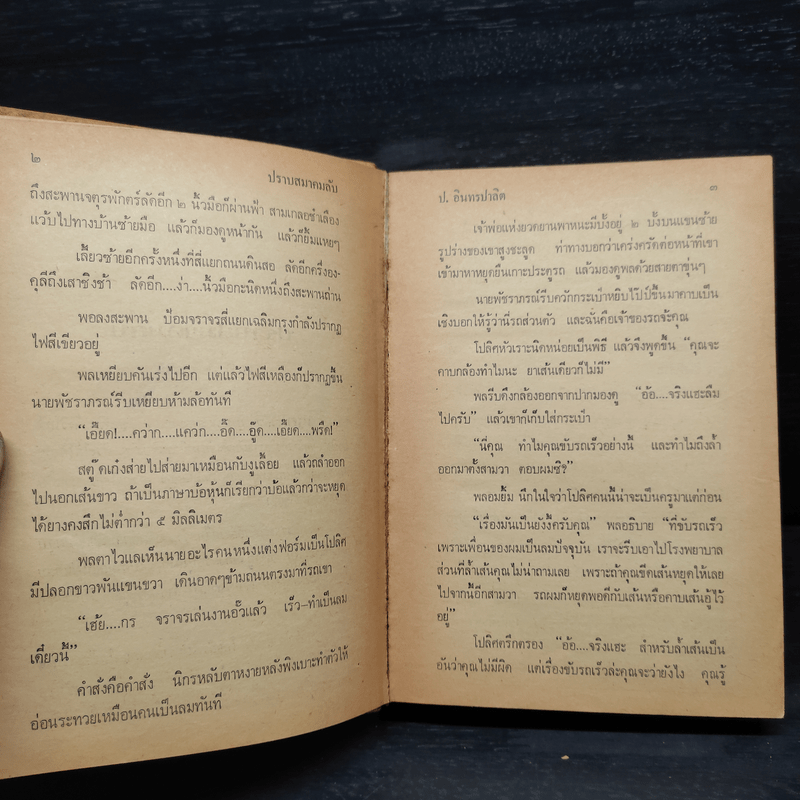 ๒
ปราบสมาคมลับ
ถึงสะพานจตุรพักตร์ลัดอีก ๒ นิ้วมือก็ผ่านฟ้า สามเกลอชำเลือง
แว้บไปทางบ้านซ้ายมือ แล้วก็มองดูหน้ากัน แล้วก็ยิ้มแหยๆ
เลี้ยวซ้ายอีกครั้งหนึ่งที่สี่แยกถนนดินสอ ลัดอีกครึ่งอง-
คุลีถึงเสาชิงช้า ลัดอีก....ง่า....นิ้วมือกะนิดหนึ่งถึงสะพานถ่าน
พอลงสะพาน ป้อมจราจรสี่แยกเฉลิมกรุงกำลังปรากฏ
ไฟสีเขียวอยู่
พลเหยียบคันเร่งไปอีก แต่แล้วไฟสีเหลืองก็ปรากฏขึ้น
นายพัชราภรณ์รีบเหยียบห้ามล้อทันที
“เอี๊ยด!....คว่าก....แคว่ก....อี๊ด....อู๊ด....เอี๊ยด....พรืด!”
สตู๊ดเก๋งส่ายไปส่ายมาเหมือนกับงูเลื้อย แล้วถลำออก
ไปนอกเส้นขาว ถ้าเป็นภาษาบ้อหุ้นก็เรียกว่าบ้อแล้วกว่าจะหยุด
ได้ยางคงสึกไม่ต่ำกว่า ๕ มิลลิเมตร
พลตาไวแลเห็นนายอะไรคนหนึ่งแต่งฟอร์มเป็นโปลิศ
มีปลอกขาวพันแขนขวา เดินอาดๆข้ามถนนตรงมาที่รถเขา
“เฮ้ย....กร จราจรเล่นงานอั๊วแล้ว เร็ว–ทำเป็นลม
เดี๋ยวนี้”
คำสั่งคือคำสั่ง นิกรหลับตาหงายหลังพิงเบาะทำตัวให้
อ่อนระทวยเหมือนคนเป็นลมทันที
ป. อินทรปาลิต
๓
เจ้าพ่อแห่งยวดยานพาหนะมีบั้งอยู่ ๒ บั้งบนแขนซ้าย
รูปร่างของเขาสูงชะลูด ท่าทางบอกว่าเคร่งครัดต่อหน้าที่เขา
เข้ามาหาหยุดยืนเกาะประตูรถ แล้วมองดูพลด้วยสายตาขุ่นๆ
นายพัชราภรณ์รีบควักกระเป๋าหยิบไปป์ขึ้นมาคาบเป็น
เชิงบอกให้รู้ว่านี่รถส่วนตัว และฉันคือเจ้าของรถจ้ะคุณ
โปลิศหัวเราะนิดหน่อยเป็นพิธี แล้วจึงพูดขึ้น “คุณจะ
คาบกล้องทำไมนะ ยาเส้นเดียวก็ไม่มี”
พลรีบดึงกล้องออกจากปากมองดู “อ้อ....จริงแฮะลืม
ไปครับ” แล้วเขาก็เก็บใส่กระเป๋า
“นี่คุณ ทำไมคุณขับรถเร็วอย่างนี้ และทำไมถึงล้ำ
ออกมาตั้งสามวา ตอบผมซิ?”
พลอมยิ้ม นึกในใจว่าโปลิศคนนี้น่าจะเป็นครูมาแต่ก่อน
“เรื่องมันเป็นยังงี้ครับคุณ” พลอธิบาย “ที่ขับรถเร็ว
เพราะเพื่อนของผมเป็นลมปัจจุบัน เราจะรีบเอาไปโรงพยาบาล
ส่วนที่ล้ำเส้นคุณไม่น่าถามเลย เพราะถ้าคุณขีดเส้นหยุดให้เลย
ไปจากนี้อีกสามวา รถผมก็หยุดพอดีกับเส้นหรือคาบเส้นอู้ไว้
อยู่”
โปลิศตรึกตรอง “อ้อ....จริงแฮะ สำหรับล้ำเส้นเป็น
อันว่าคุณไม่มีผิด แต่เรื่องขับรถเร็วล่ะคุณจะว่ายังไง คุณรู้